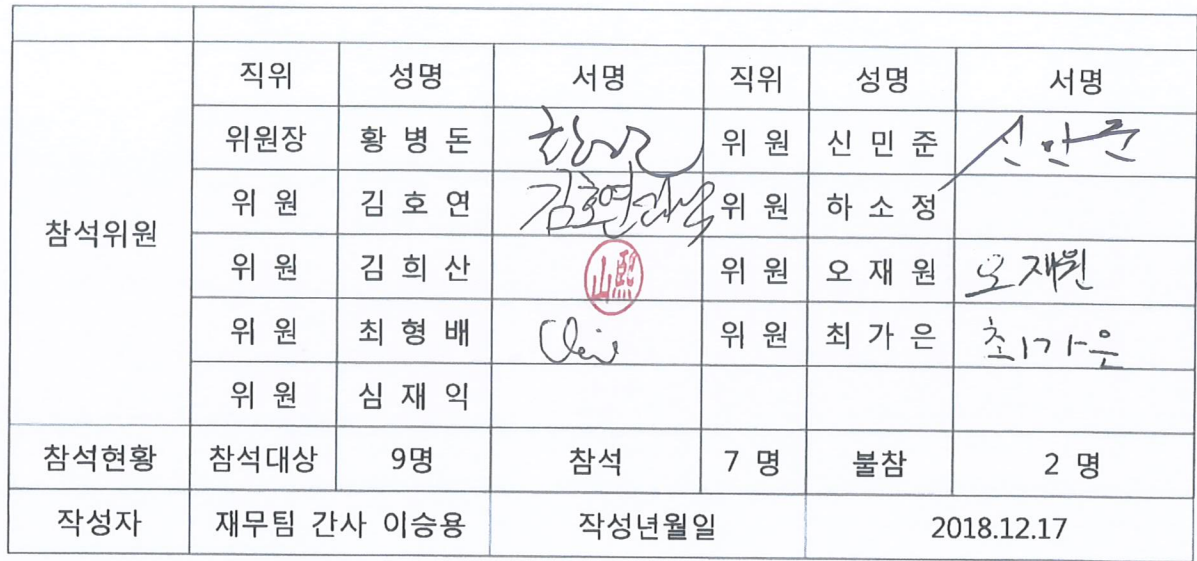 직위 성명 서명 직위 성명 서명
위원장 황 병 돈 위 원 신 민 준 신민준
참석위원 위 원 김 호 연 김호연 위 원 하 소 정
위 원 김 희 산 위 원 오 재 원 오재원
위 원 최 형 배 위 원 최 가 은 최가은
위 원 심 재 익
참석현황 참석대상 9명 참석 7 명 불참 2 명
작성자 재무팀 간사 이승용 작성년월일 2018.12.17